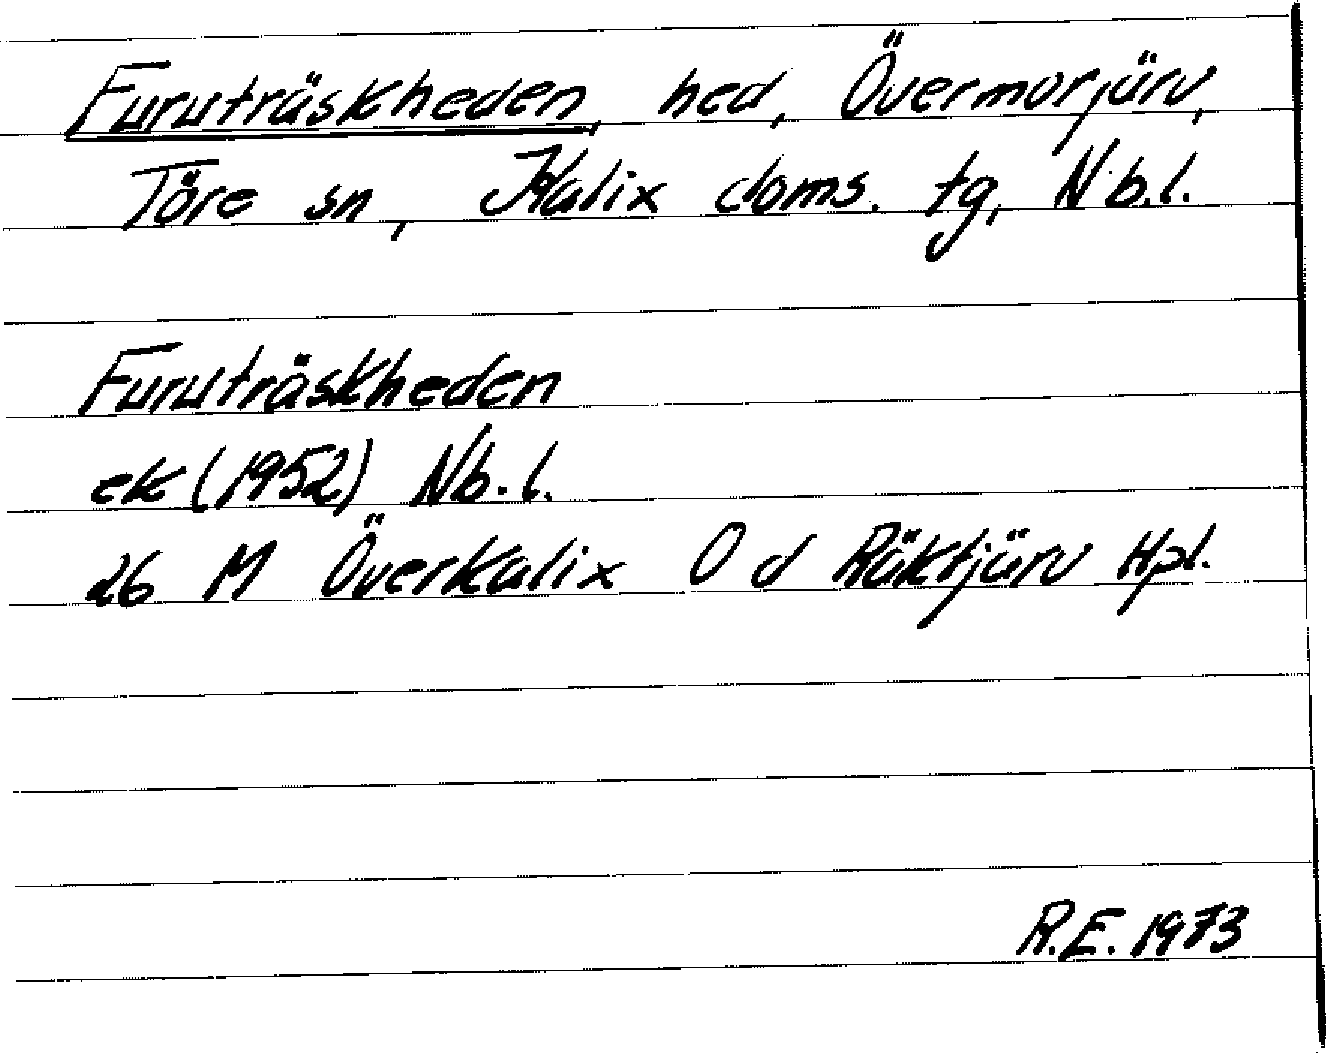 Furuträskheden, hed, Övermorjärv,
Töre sn, Kalix doms. tg, Nb.l.
Furuträskheden
ek (1952) Nb.l.
26 M Överkalix O d Räktjärv Hpl.
R.E. 1973